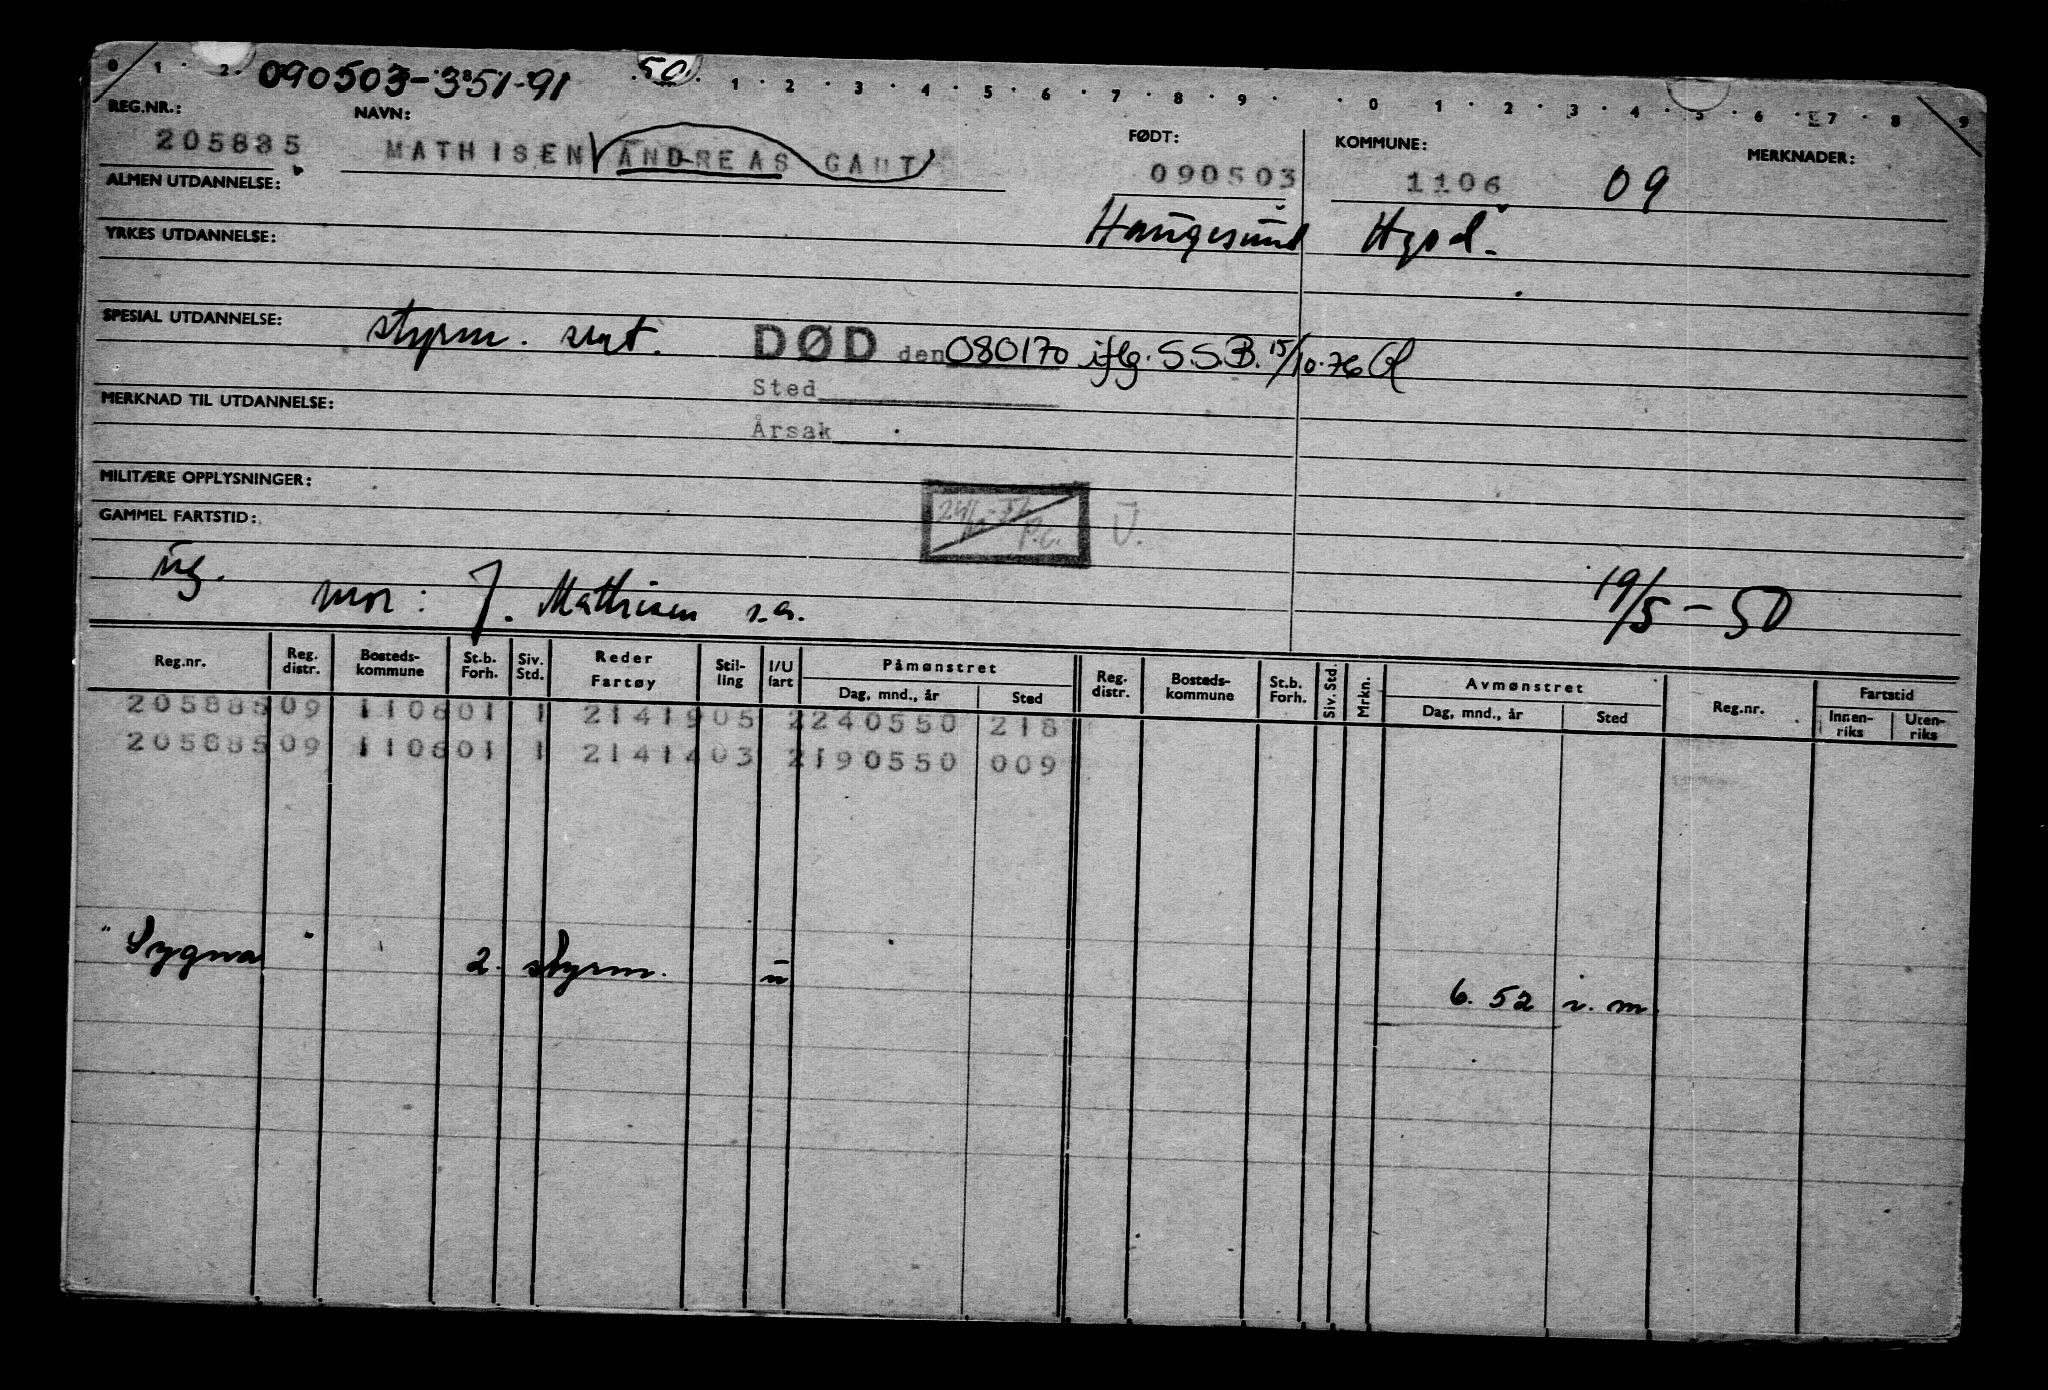 0 1 2 090503-351-91 50 1 2 3 4 5 6 7 8 9 0 1 2 3 4 5 6 7 8 9
REG.NR.: NAVN: FØDT: KOMMUNE: MERKNADER:
205885 MATHISEN ANDREAS GAUT 090503 1106 09
ALMEN UTDANNELSE:
Haugesund Hgsd.
YRKES UTDANNELSE:
SPESIAL UTDANNELSE: styrm. sert. DØD den 080170 iflg. S.S.B. 15/10-76
Sted
MERKNAD TIL UTDANNELSE:
Årsak
MILITÆRE OPPLYSNINGER:
GAMMEL FARTSTID: P.C. U.
ug. mor: J. Mathisen s.a. 19/5-50
Reg.nr. Reg. distr. Bosteds-kommune St.b. Forh. Siv. Std. Reder Fartøy Stil-ling I/U fart Påmønstret Dag, mnd., år Sted Reg. distr. Bosteds-kommune St.b. Forh. Siv. Std. Mrkn. Avmønstret Dag, mnd., år Sted Reg.nr. Fartstid Innen-riks Uten-riks
205885 09 1106 01 1 2141905 2240550 218
205885 09 1106 01 1 2141403 2190550 009
"Sygna" 2. styrm. u 6. 52 i. m.